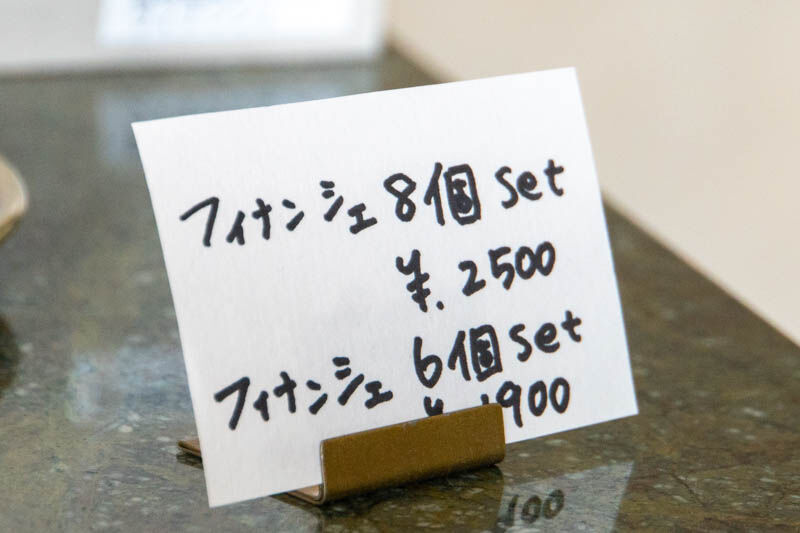 フィナンシェ 8個 set
¥. 2500
フィナンシェ 6個 set
¥ 1900